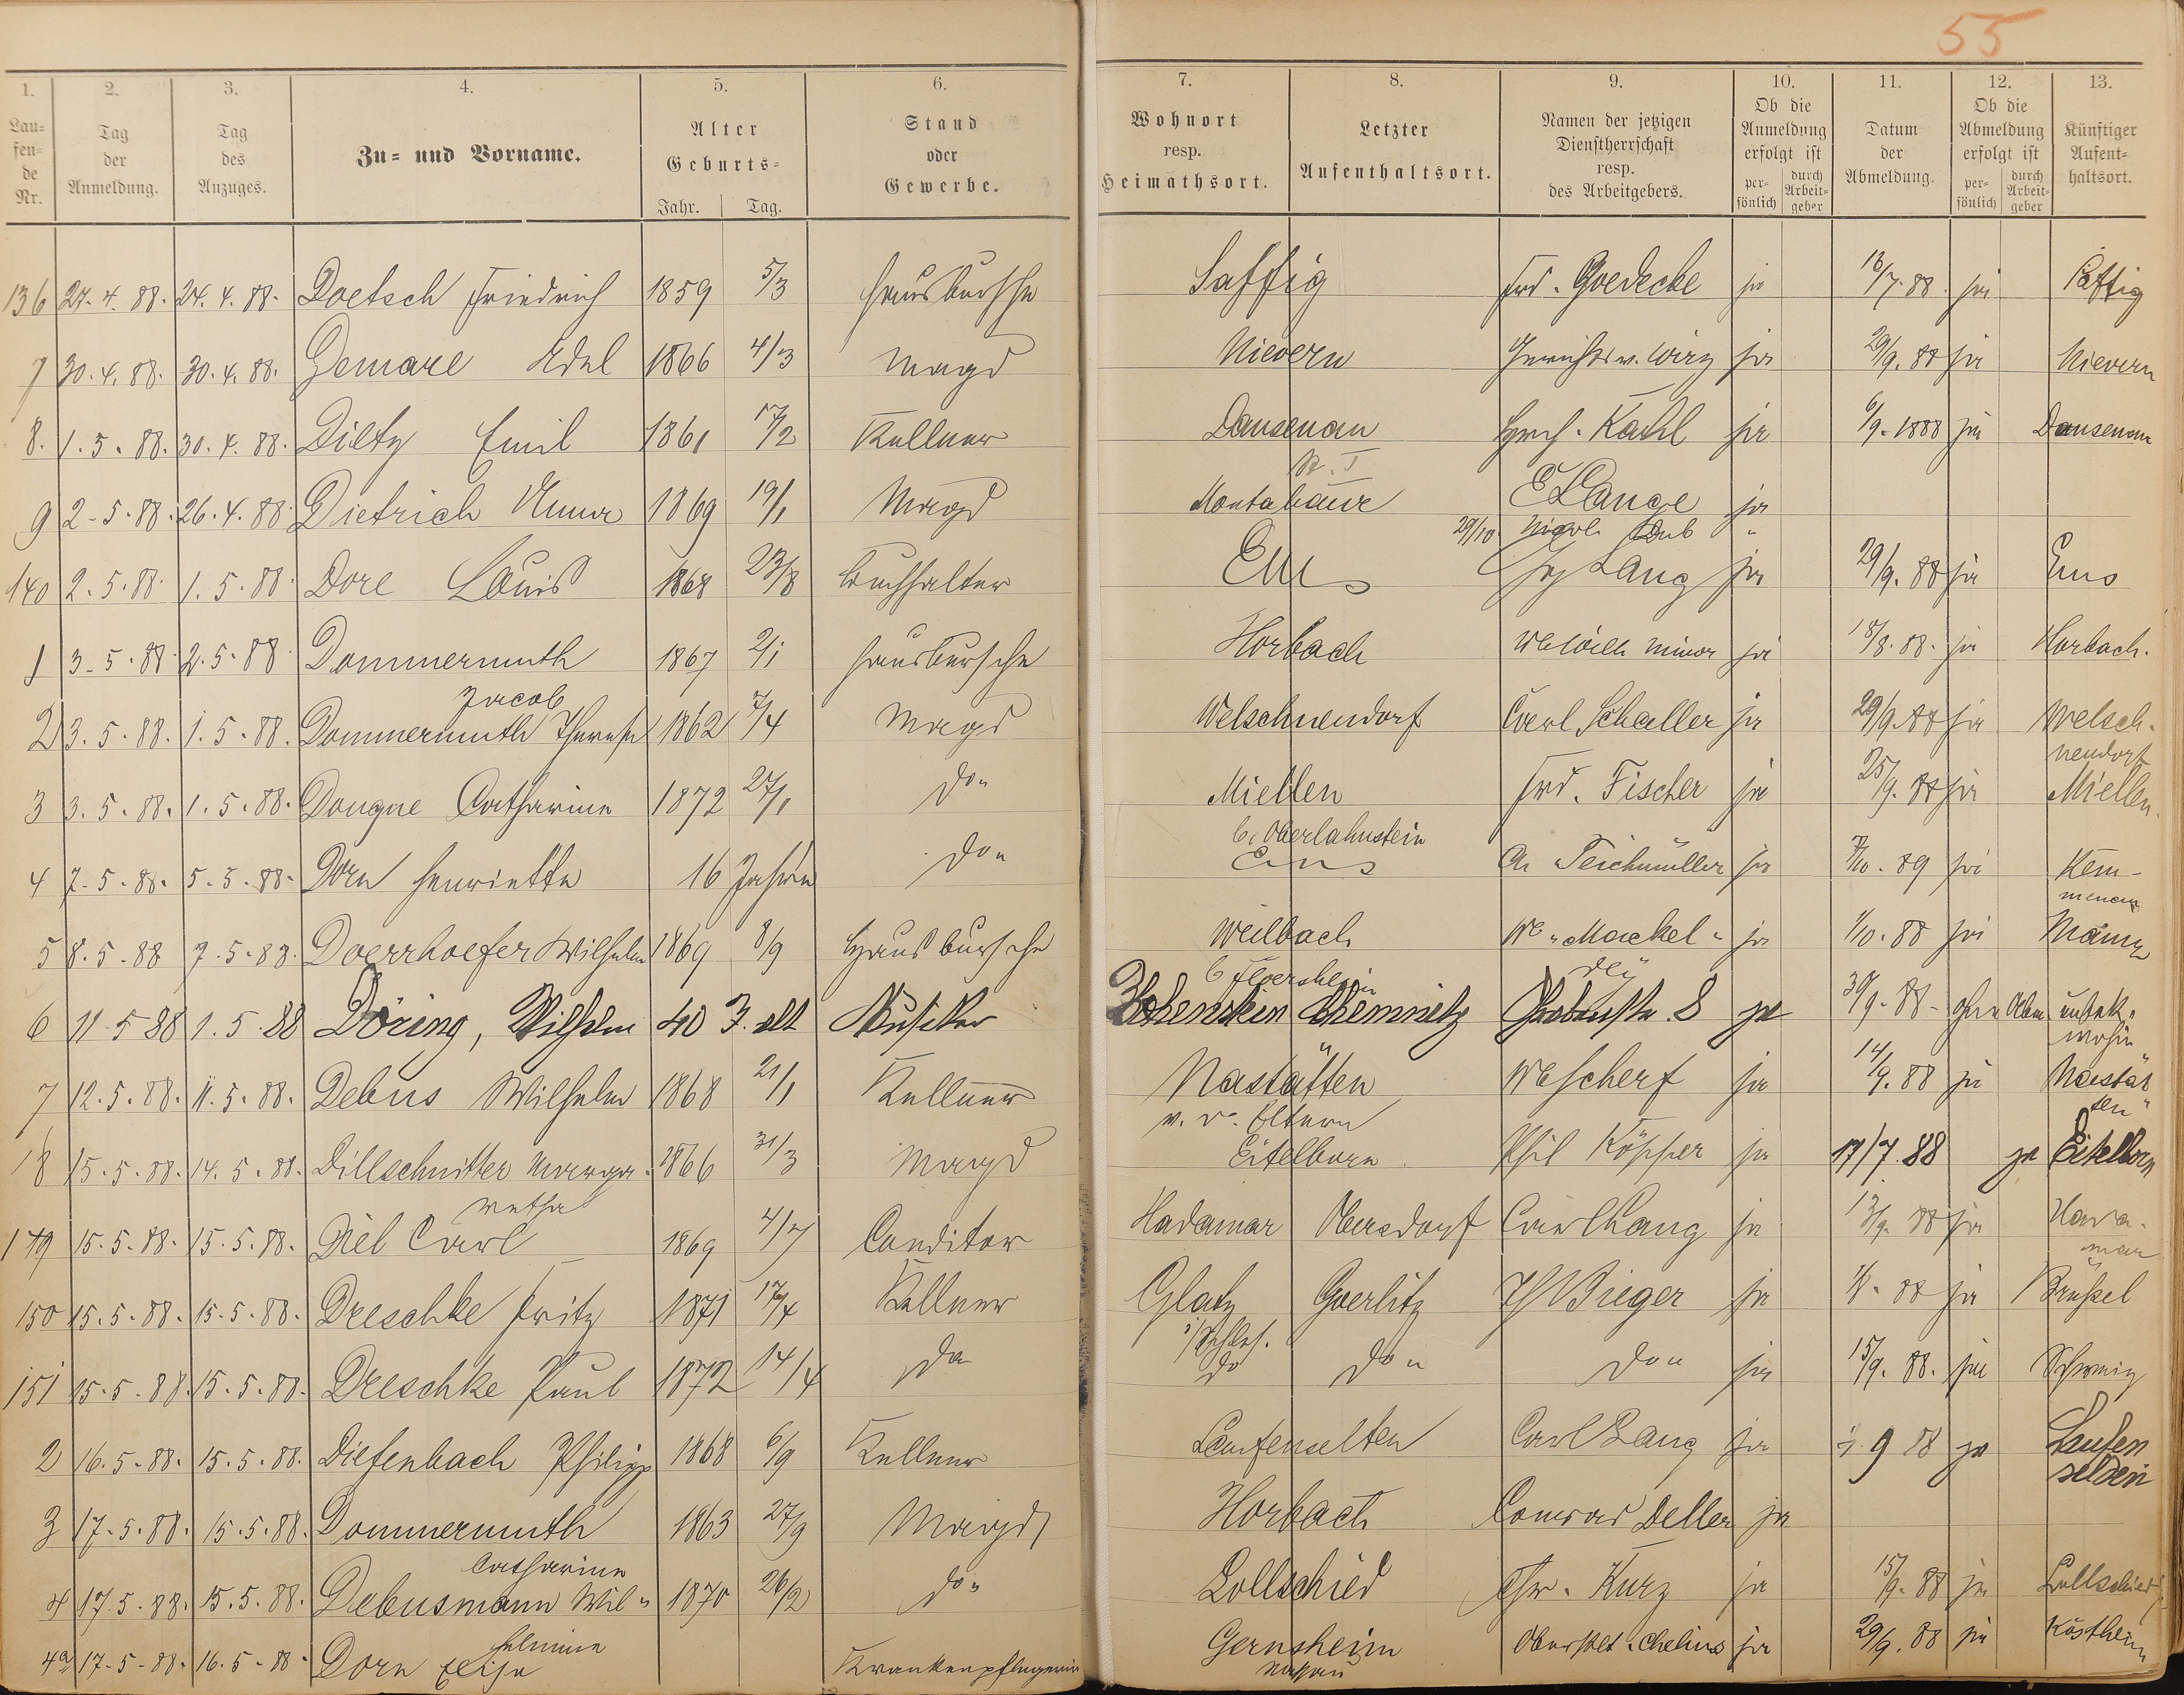 55
1. 2. 3. 4. 5. 6. 7. 8. 9. 10. 11. 12. 13.
Lau=fen=de Nr. Tag der Anmeldung. Tag des Anzuges. Zu= und Vorname. Alter Geburts= Jahr. Tag. Stand oder Gewerbe. Wohnort resp. Heimathsort. Letzter Aufenthaltsort. Namen der jetzigen Dienstherrschaft resp. des Arbeitgebers. Ob die Anmeldung erfolgt ist per=sönlich durch Arbeit=geber Datum der Abmeldung. Ob die Abmeldung erfolgt ist per=sönlich durch Arbeit=geber Künftiger Aufent=haltsort.
136 27. 4. 88. 24. 4. 88. Doetsch Friedrich 1859 5/3 Hausbursche Saffig Frd. Goedecke ja 16/7. 88. ja Saffig
7 30. 4. 88. 30. 4. 88. 1866 4/3 Magd Nievern ja 29/9. 88 ja Nievern
8. 1. 5. 88. 30. 4. 88. Dietz Emil 1861 17/2 Kellner Dausenau Hrch. Kahl ja 6/9. 1888 ja Dausenau
9 2. 5. 88. 26. 4. 88. Dietrich Anna 1869 19/1 Magd Montabaur E Lange ja
29/10.
140 2. 5. 88. 1. 5. 88. Dore Louis 1868 23/8 Buchhalter Ems Lang ja 29/9. 88 ja Ems
1 3. 5. 88. 2. 5. 88 Dommermuth 1867 2/1 Hausbursche Horbach ja 18/8. 88. ja Horbach.
Jacob
2 3. 5. 88. 1. 5. 88. Dommermuth Therese 1862 7/4 Magd Welschneudorf Carl Schaller ja 29/9. 88 ja Welsch-
neudorf
3 3. 5. 88. 1. 5. 88. Dongne Catharine 1872 27/1 do Miellen Frd. Fischer ja 25/9. 88 ja Miellen.
b. Oberlahnstein
4 7. 5. 88. 5. 5. 88. Dorn Henriette 16 Jahre do Ems Teichmüller ja 7/10. 89 ja Kem-
menau
5 8. 5. 88 7. 5. 88. Doerrhoefer Wilhelm 1869 8/9 Hausbursche Weilbach We. Marckel ja 1/10. 88 ja Mainz
b Floersheim
6 11. 5 88 1. 5. 88 Döring, Wilhelm 40 J. alt Musiker Hohenstein Chemnitz 8 ja 30/9. 88 unbek.
wohin
7 12. 5. 88. 11. 5. 88. Debus Wilhelm 1868 21/1 Kellner Nastätten We Scherf ja 14/9. 88 ja Nastät
ten
v. d. Eltern
18 15. 5. 88. 14. 5. 88. Dillschnitter Marga- 1866 31/3 Magd Eitelborn Phil Köpper ja 17/7 88 ja Eitelborn
retha
149 15. 5. 88. 15. 5. 88. Diel Carl 1869 4/7 Conditor Hadamar Obersdorf Carl Lang ja 13/9. 88 ja Hada-
mar
150 15. 5. 88. 15. 5. 88. Dreschke Fritz 1871 17/4 Kellner Glatz Goerlitz Th Bieger ja 88 ja Brüssel
i/Schles.
151 15. 5. 88. 15. 5. 88. Dreschke Paul 1872 14/4 do do do do ja 15/9. 88. ja Schweiz
2 16. 5. 88. 15. 5. 88. Diefenbach Philipp 1868 6/9 Kellner Laufenselten Carl Lang ja 9 88 ja Laufen
selden
3 17. 5. 88. 15. 5. 88. Dommermuth 1863 27/9 Magd Horbach Conrad Deller ja
Catharine
4 17. 5. 88. 15. 5. 88. Debusmann Wil- 1870 26/2 do Lollschied Chr. Kurz ja 15/9. 88 ja Lollschied
helmine
4a 17. 5. 88. 16. 5. 88. Dorn Elise Krankenpflegerin Gernsheim Chelius ja 29/9. 88 ja Kostheim
Nassau